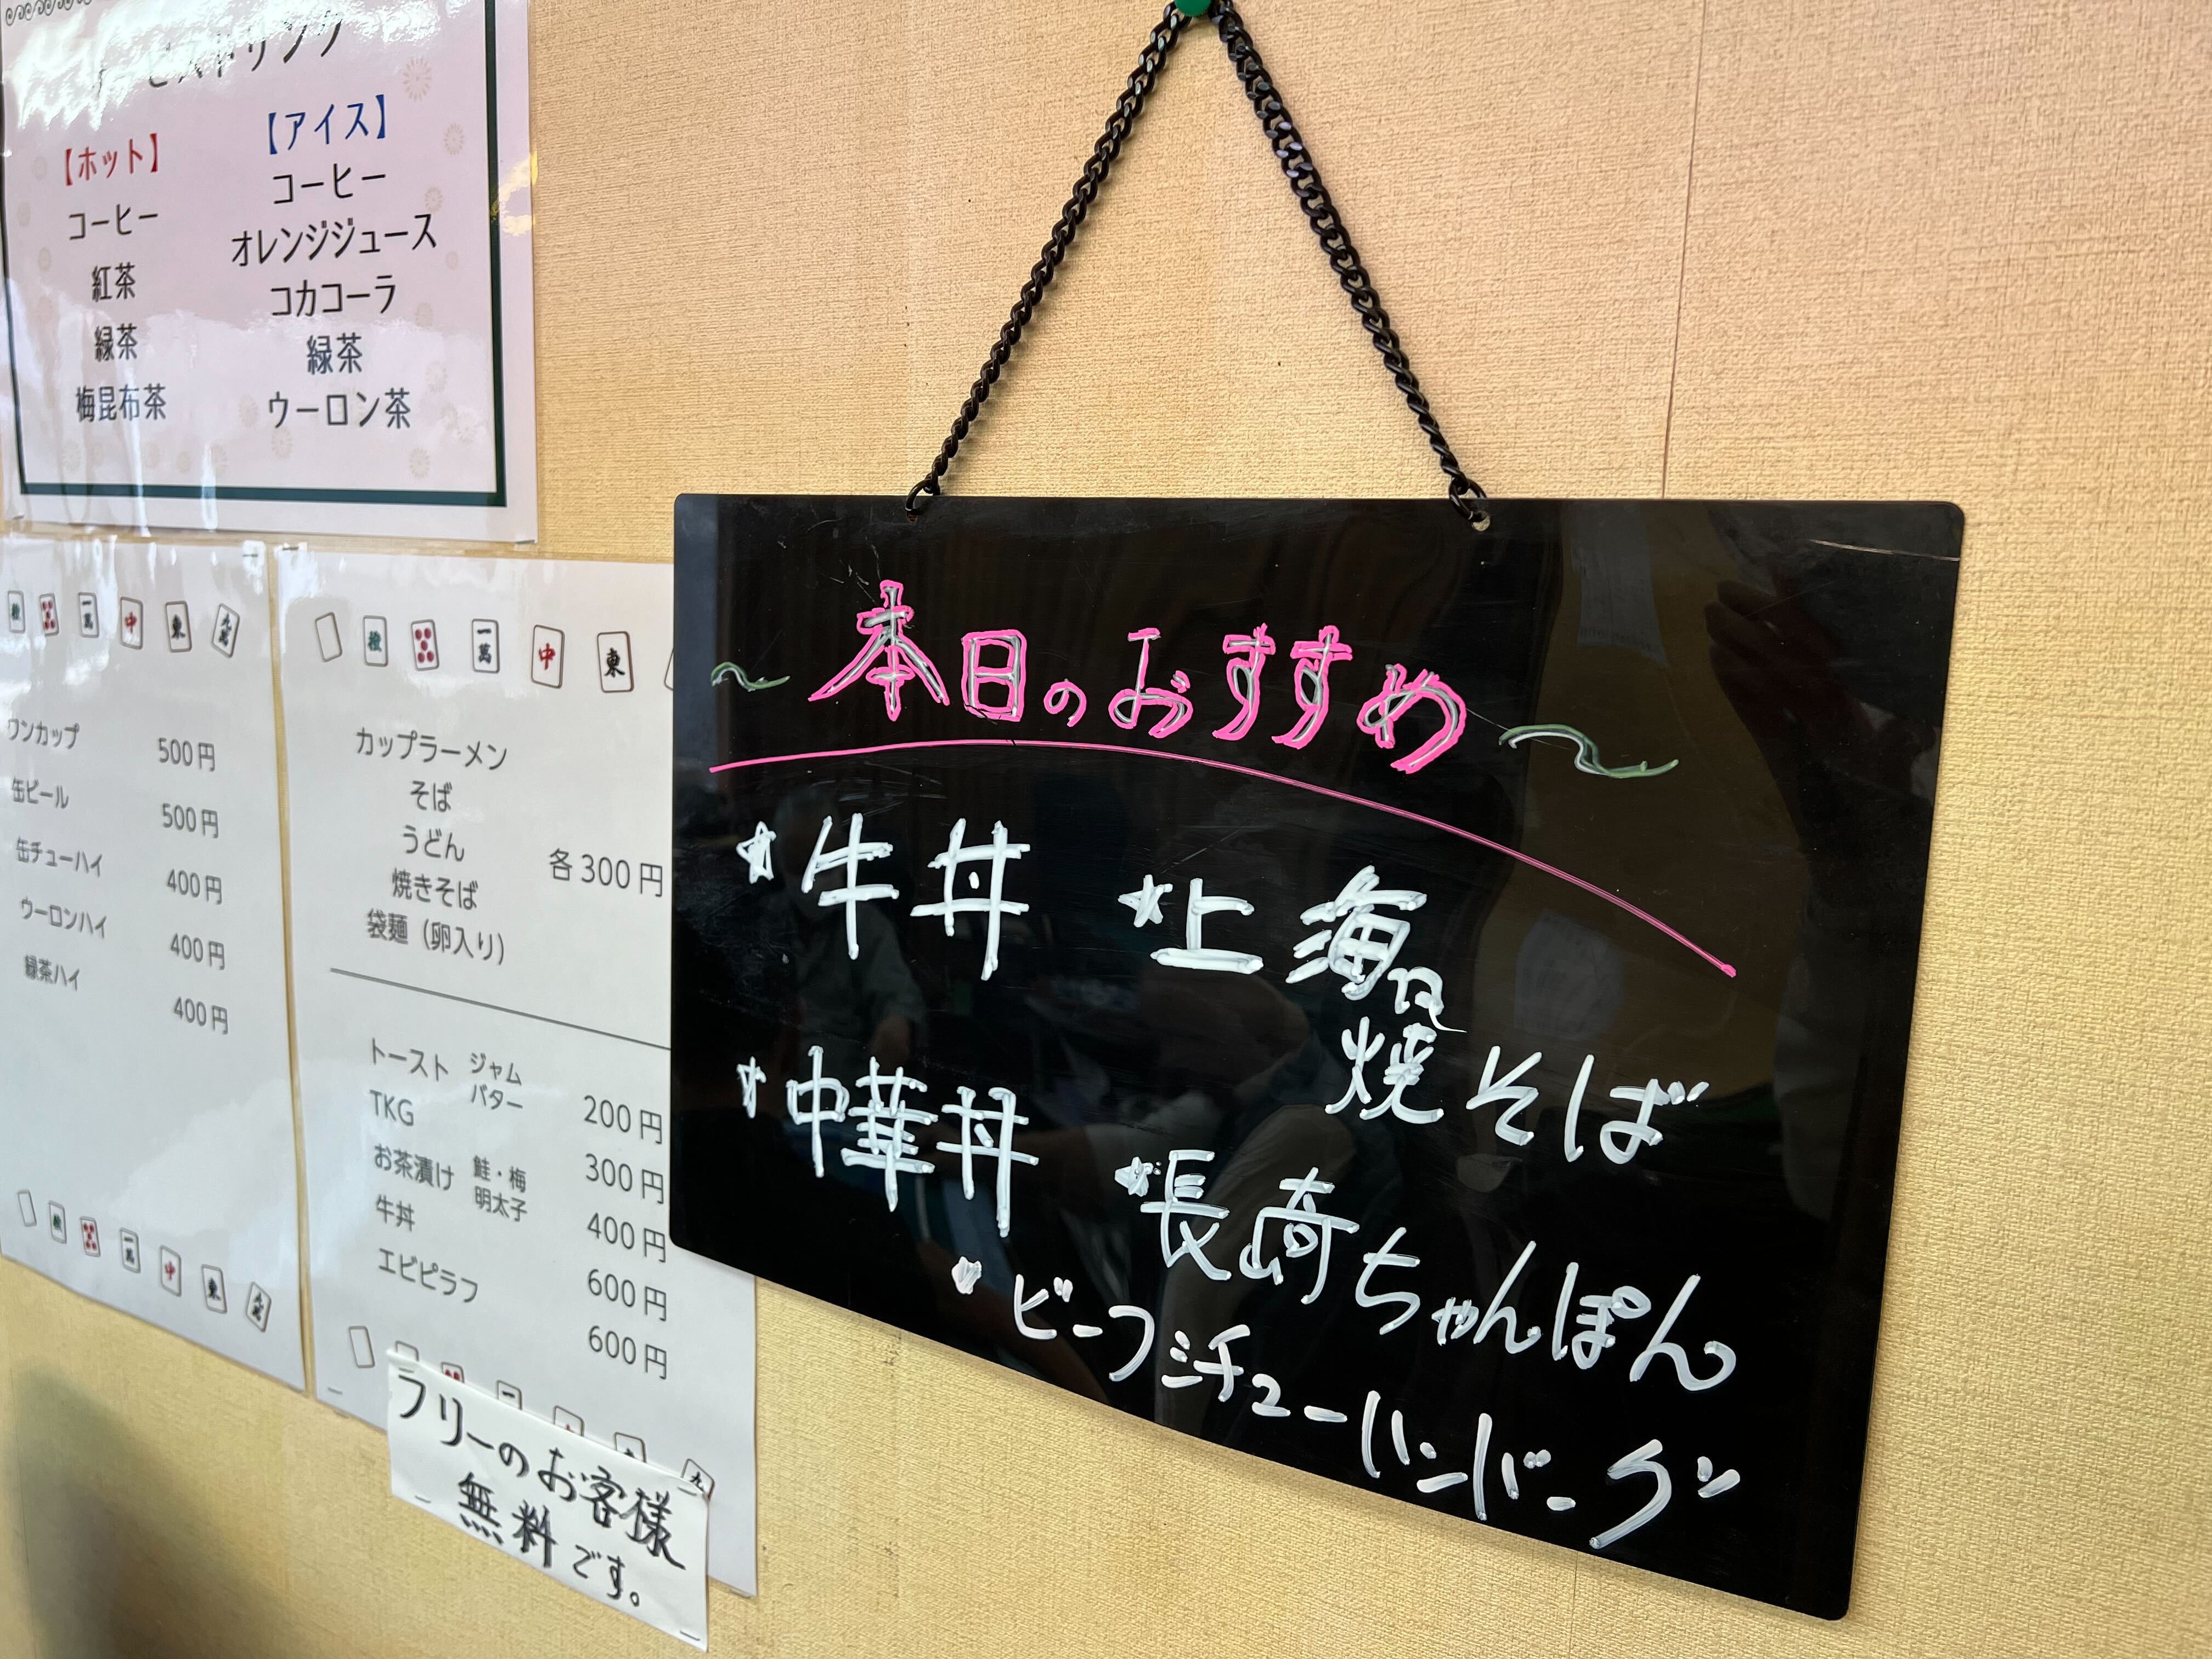 ービスドリンク
【ホット】
コーヒー
紅茶
緑茶
梅昆布茶
【アイス】
コーヒー
オレンジジュース
コカコーラ
緑茶
ウーロン茶
ワンカップ 500円
缶ビール 500円
缶チューハイ 400円
ウーロンハイ 400円
緑茶ハイ 400円
一萬 中 東
カップラーメン
そば
うどん
焼きそば
袋麺（卵入り）
各300円
トースト ジャム バター 200円
TKG 300円
お茶漬け 鮭・梅 明太子 400円
牛丼 600円
エビピラフ 600円
フリーのお客様
無料です。
本日のおすすめ
牛丼
中華丼
上海風
焼そば
長崎ちゃんぽん
ビーフシチューハンバーグ